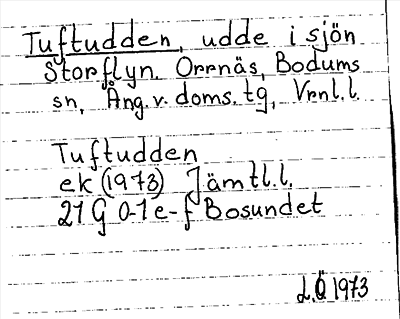 Tuftudden, udde i sjön
Storflyn. Orrnäs, Bodums
sn, Ång.v. doms. tg, Vrnl.l.
Tuftudden
ek (1973) Jämtl.l.
21 G 0-1 e-f Bosundet
L.Ö 1973